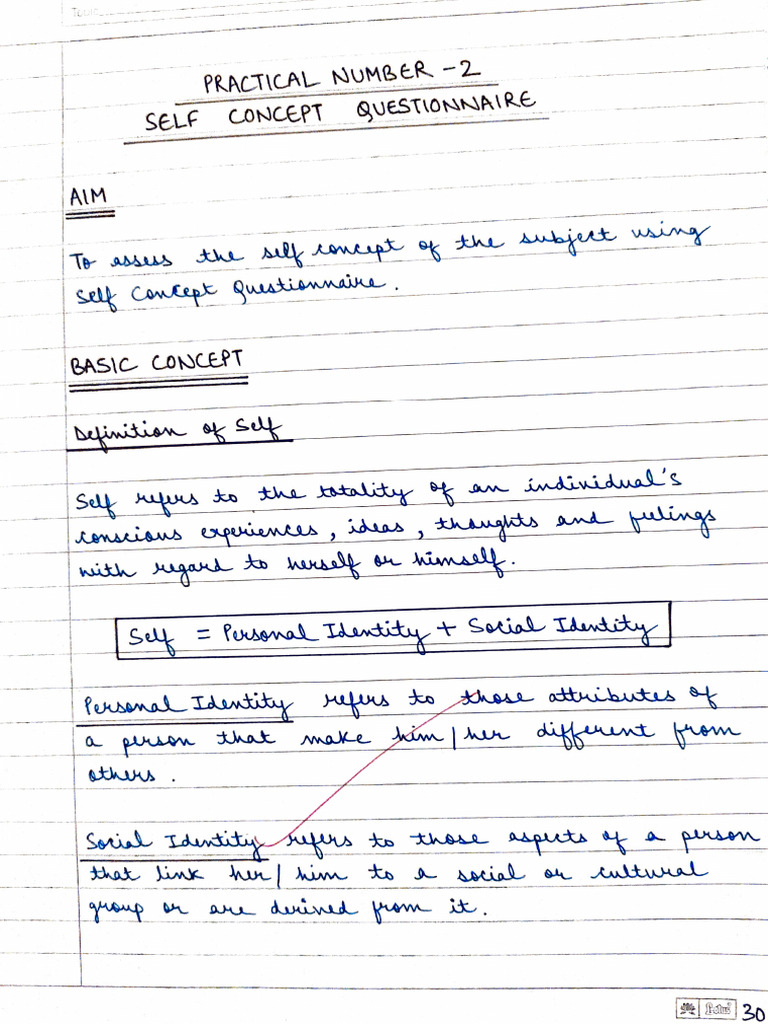 PRACTICAL NUMBER - 2
SELF CONCEPT QUESTIONNAIRE
AIM
To assess the self concept of the subject using
Self Concept Questionnaire.
BASIC CONCEPT
Definition of Self
Self refers to the totality of an individual's
conscious experiences, ideas, thoughts and feelings
with regard to herself or himself.
Self = Personal Identity + Social Identity
Personal Identity refers to those attributes of
a person that make him/her different from
others.
Social Identity refers to those aspects of a person
that link her/him to a social or cultural
group or are derived from it.
30